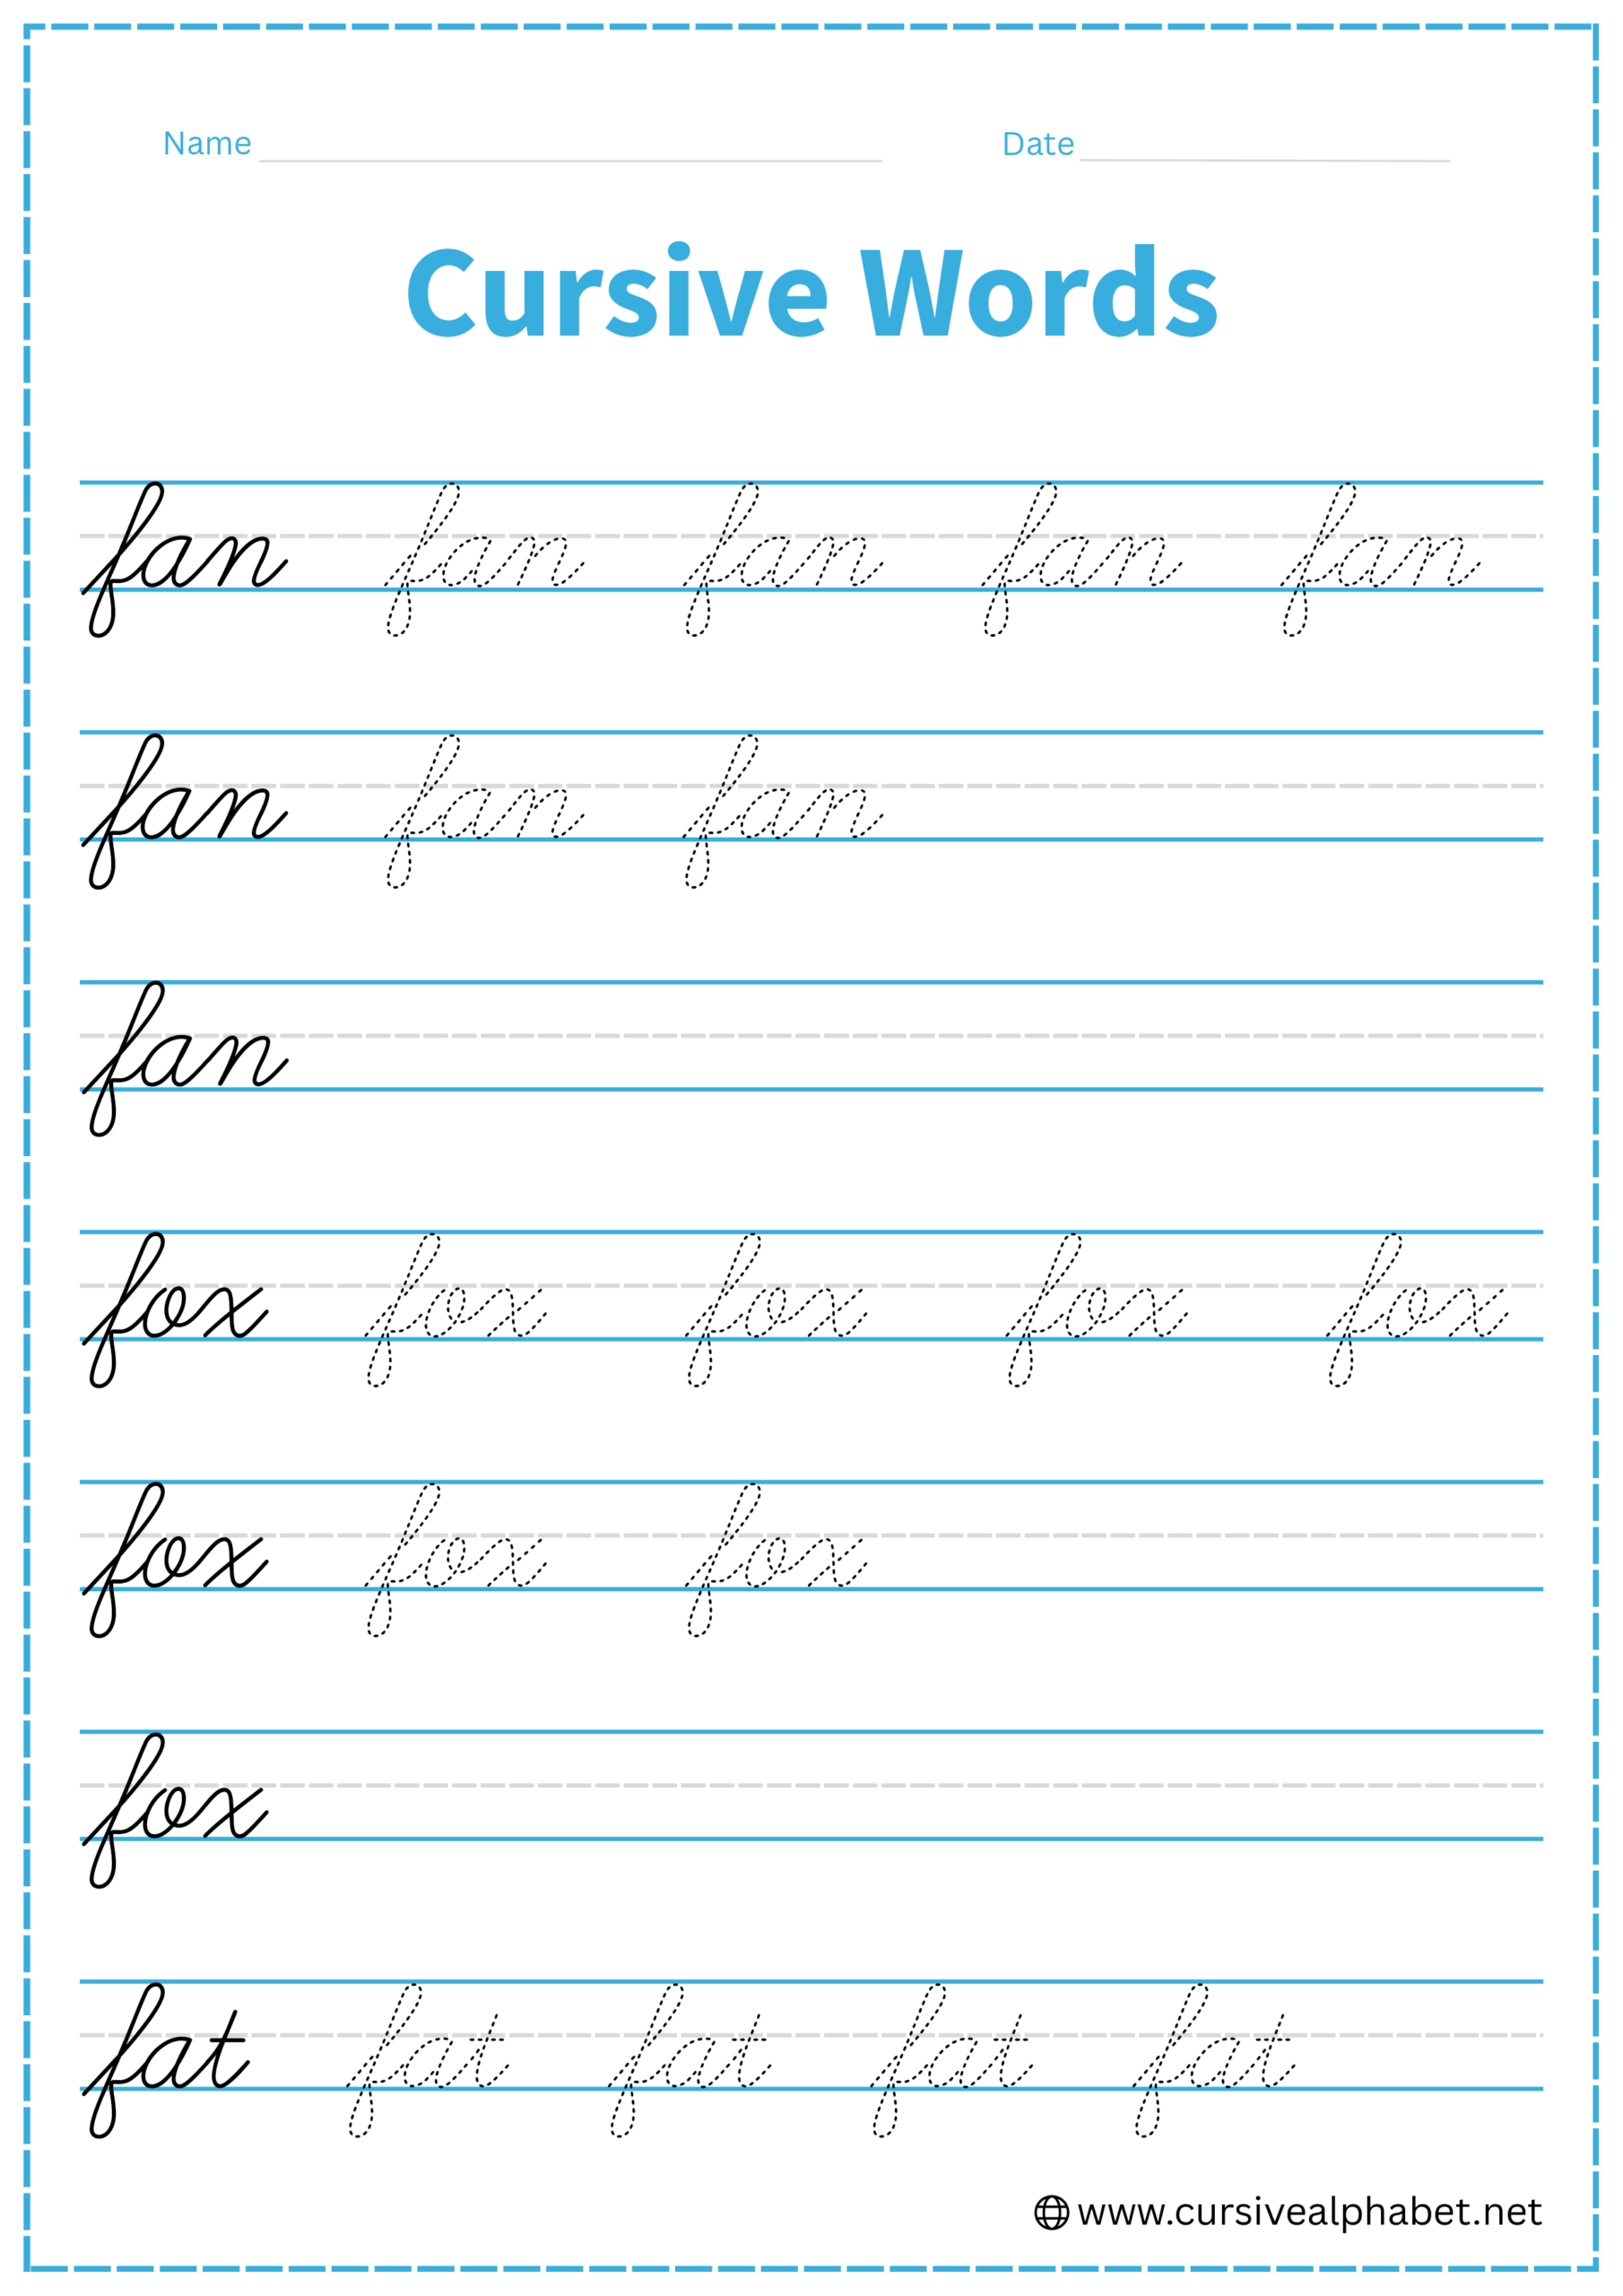 Name Date
Cursive Words
fan fan fan fan fan
fan fan fan
fan
fox fox fox fox fox
fox fox fox
fox
fat fat fat fat fat
www.cursivealphabet.net